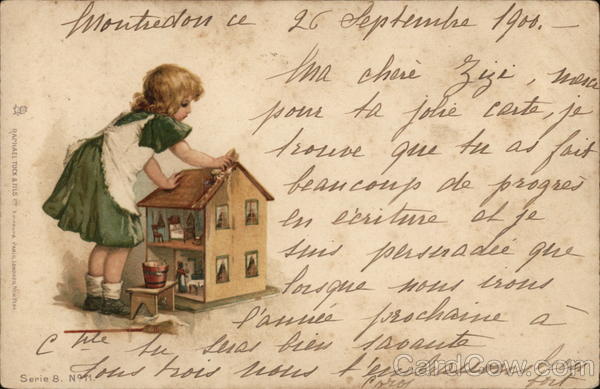 Montredon ce 26 Septembre 1900.—
Ma chère Zizi, merci
pour ta jolie carte, je
trouve que tu as fait
beaucoup de progrès
en écriture et je
suis persuadée que
lorsque nous irons
l'année prochaine à
Cette tu seras bien savante
Tous trois nous t'en
fort
RAPHAEL TUCK & FILS
PARIS, LONDON, NEW YORK
Serie 8. No 11.
CardCow.com